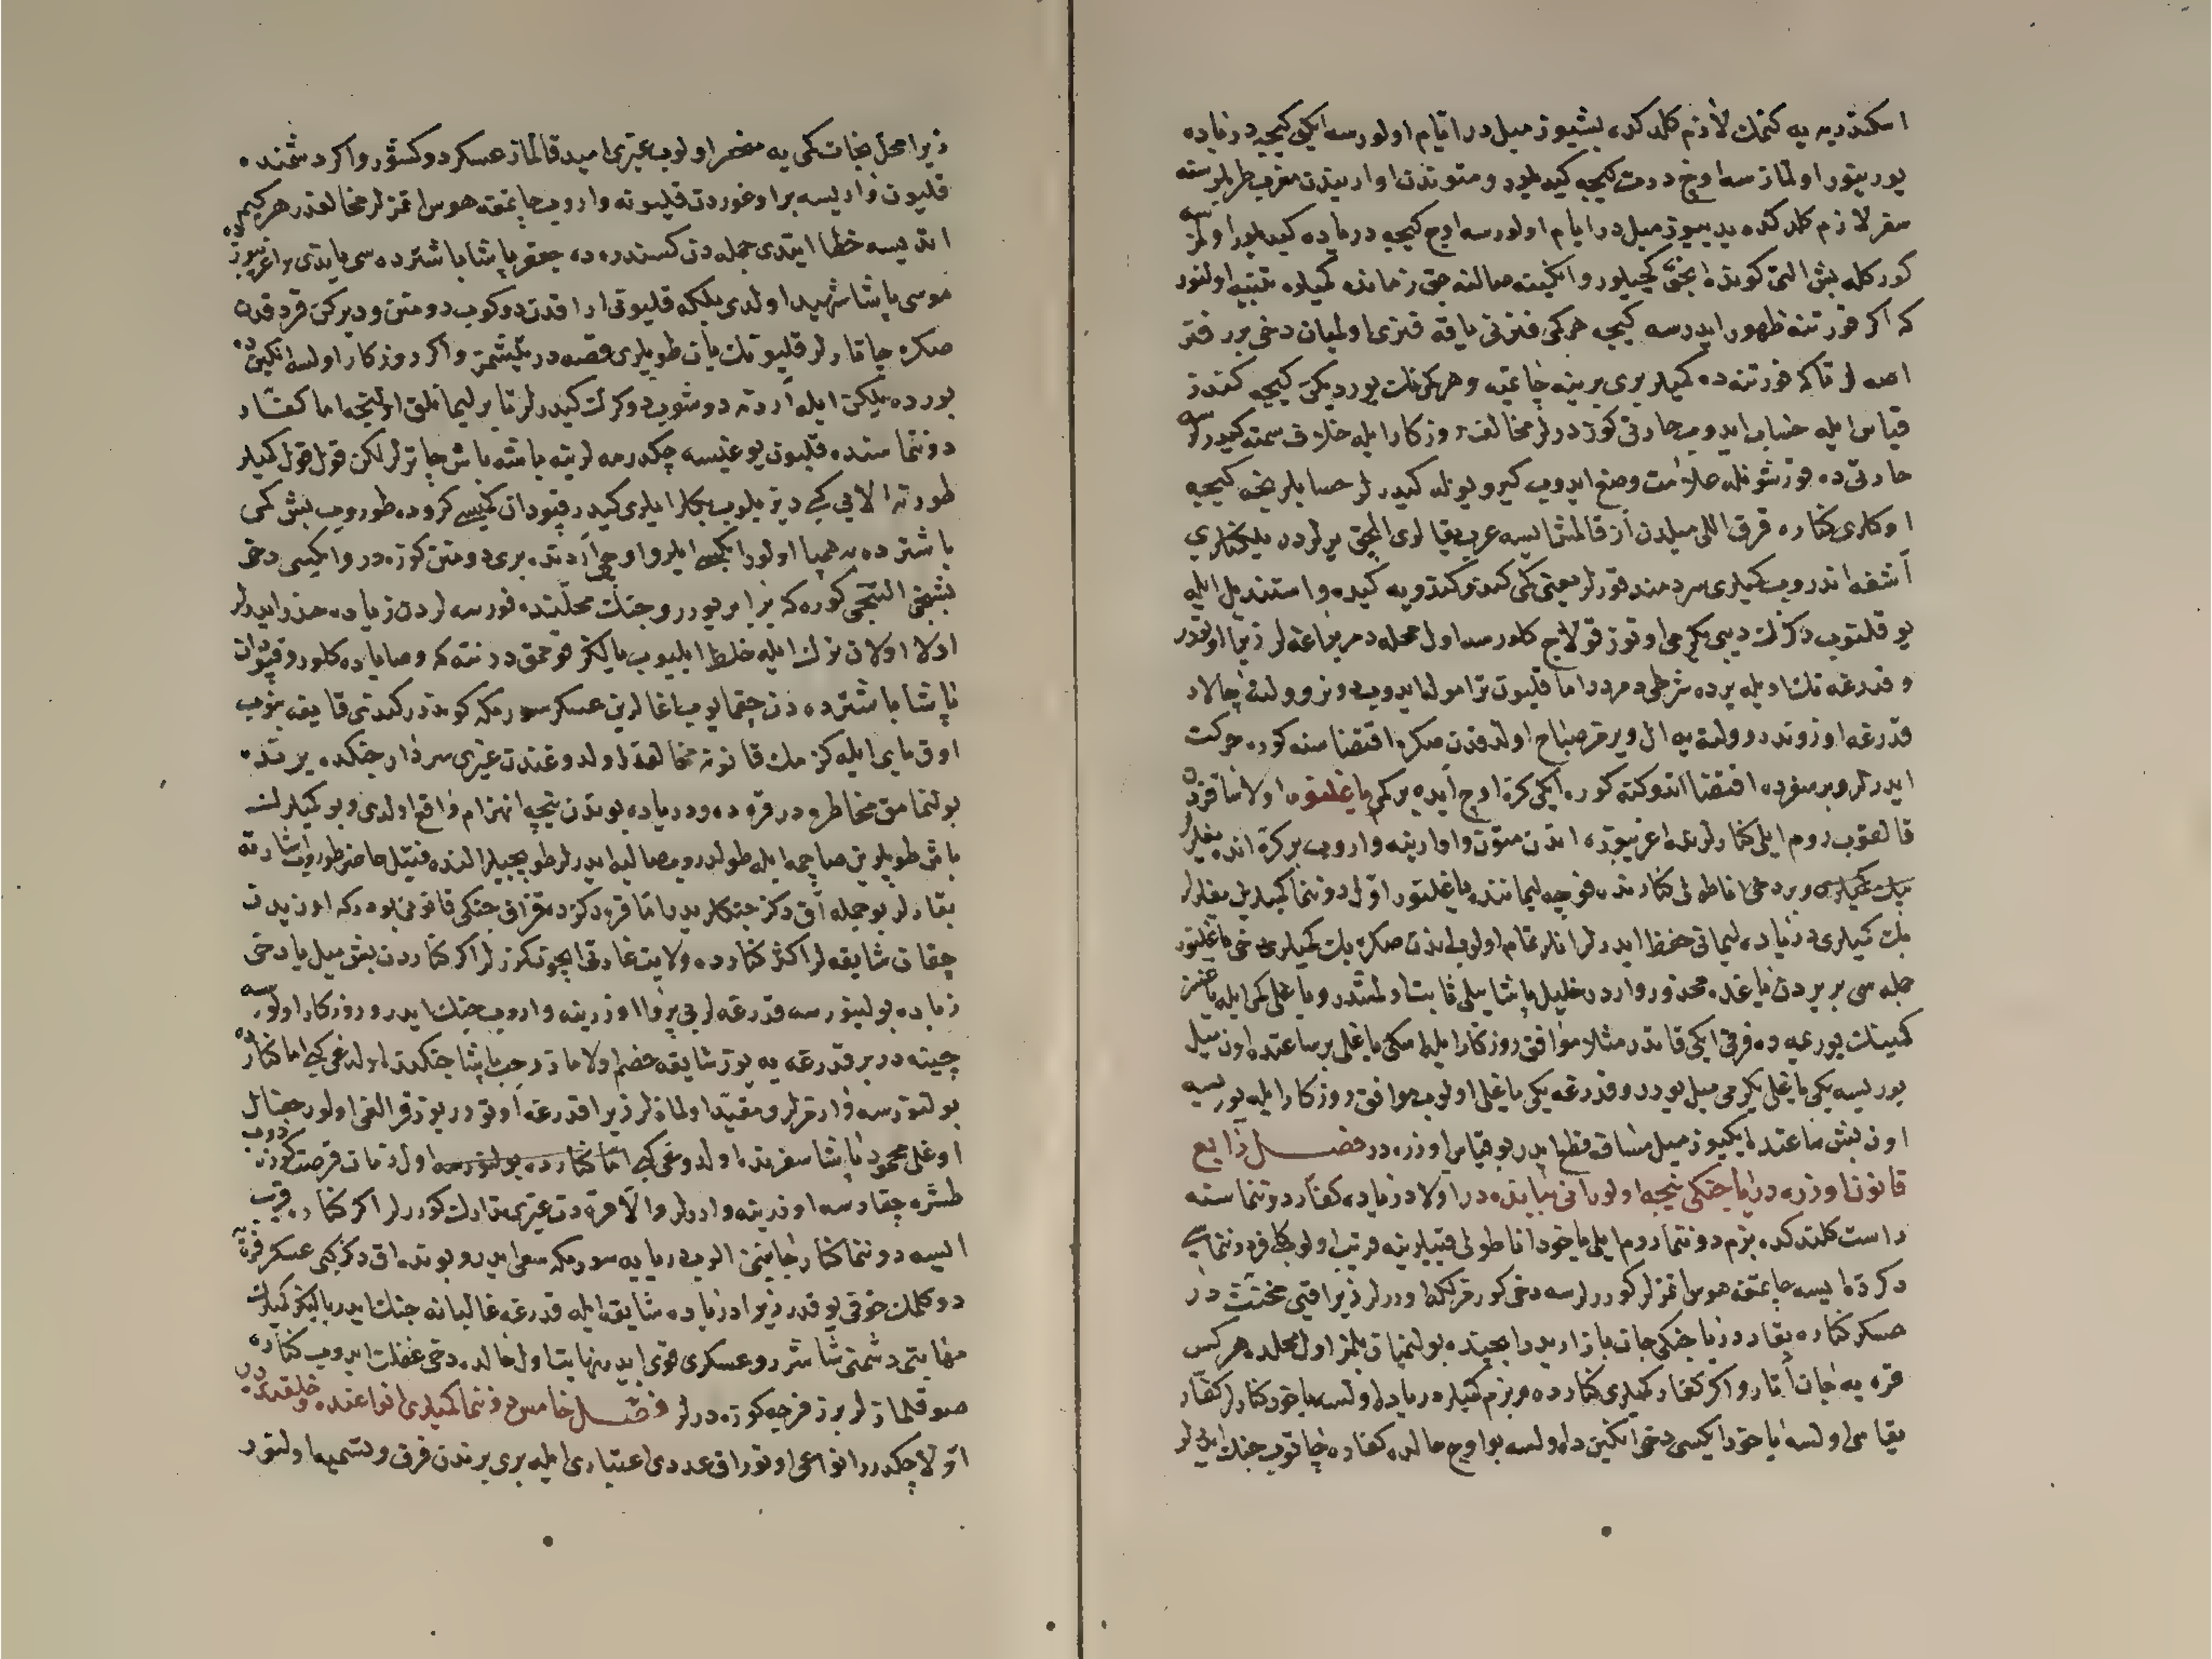 اسكندريه يه كتمك لازم كلدكده بشيوز ميل در ايام اولورسه ايكى كيجه درياده
يورينور اولمازسه اوچ درت كيجه كيديلور و متوندن اوارينdن مغرب طرابلسنه
سفر لازم كلدكده يديوز ميل در ايام اولورسه اوچ كيجه درياده كيديلور اولمزسه
كوركله بش التى كونده انجق كچيلور و انكينه صالنه جق زمانده كميلره تنبيه اولنور
كه اكر فورتنه ظهور ايدرسه كيجه هركمى فنرنى ياقه فنرى اولميان دخى برر فنر
اصه لر تاكه فورتنه ده كميلر برى برينه چاتميه و هركمينك يورديكن كيجه كندز
قياس ايله حساب ايدوب خارتى كوزدرلر مخالف روزكار ايله خلاف سمته كيدرلرسه
خارتى ده قورشونله علامت وضع ايدوب كيرو يوله كيدرلر حسابلرنجه كيجه
اوكلرى كناره قرق اللى ميلدن از قالمش ايسه عرب يقالرى الچق يرلردر يلكنلرى
اشغه اندروب كميلرى سردمند قورلر يعنى كمى كندو كندويه كيده و اسقنديل ايله
يوقلنوب دكزك ديبى يكرمى اوتوز قولاج كلورسه اول محلده دمر براغه لر زيرا اولقدر
و قدرغه نك اويله يرده شرطى دمردر اما قليون تراموله ايدوب دونر و ولته چالار
قدرغه اوزوندر ولته يه ال ويرمز صباح اولدقدن صكره اقتضاسنه كوره حركت
ايدرلر و بر سفرده اقتضا اتدوكنه كوره ايكى كره اوچ ايده بركمى ياغلنور اولا ساقزدن
قالقوب روم ايلى كنارلرنده اغريبوزه اندن متون و اوارينه واروب بر كره انده يغلرلر
بك كميلرى و بر دخى اناطولى كنارنده فوچه ليماننده ياغلنور اول دوننما كميلرين يغلرلر
بك كميلرى درياده ليمانى حفظ ايدرلر انلر تمام اولوب اندن صكره بك كميلرى دخى ياغلنور
جمله سى بر يردن ياغده محذور واردر خليل پاشا ييلى ثابت اولمشدر و ياغلى كمى ايله ياغسز
كمينك يوريمه ده فرقى ايكى قاتدر مثلا موافق روزكار ايله اسكى ياغلى بر ساعتده اون ميل
يوريسه يكى ياغلى يكرمى ميل يورر و قدرغه يكى ياغلى اولوب موافق روزكار ايله يوريسه
اون بش ساعتده ايكيوز ميل مسافه قطع ايدر بو قياس اوزره در فصل رابع
قانون اوزره دريا جنكى نيجه اولور انى بياننده در اولا درياده كفار دوننماسنه
راست كلندكده بزم دوننما روم ايلى ياخود اناطولى قبيلرينه قريب اولوب كافر دوننماسى
دكزده ايسه چاتمغه هوس اتمزلر كوررلرسه دخى كورمزلكه اوررلر زيرا قتى مخنث در
عسكر كناره بقار دريا جنكى جان بازاريدر ايچنده بولنميان بلمز اول محلده هركس
قره يه جان اتار و اكر كفار كميلرى كنارده و بزم كميلر درياده اولسه ياخود كنارلر كفار
يقاسى اولسه ياخود ايكيسى دخى انكينده اولسه بو اوچ حالده كفاره چاتوب جنك ايدرلر
زيرا محل نجات كمى يه منحصر اولوب غيرى اميد قالماز عسكر دوكشور و اكر دشمنده
قليون وار ايسه براوغوردن قليونه واروب چاتمغه هوس اتمزلر مخالفدر هركيم
اتديسه خطا ايتدى جمله دن كسندره ده جعفر پاشا باشترده سى ياندى و اغريبوزده
موسى پاشا شهيد اولدى بلكه قليونى اراقدن دوكوب دومنن و ديركن قردقدن
صكره چاتارلر قليونك يان طوپلرى قصه در يتشمز و اكر روزكار اولسه انكينده
بورده يلكن ايله آردنه دوشوب دوكرك كيدرلر تا بر ليمانلق اولنجه اما كفار
دوننماسنده قليون يوغيسه چكدرمه لرينه باشه باش چاترلر لكن قول قول كميلر
طورنه الايى كبى ديزيلوب بكلر ايلرى كيدر قپودان كميسى كروده طوروب بش كمى
باشترده يه همپا اولور ايكيسى ايلرو اوچى آردنده برى دومنن كوزه در و ايكيسى دخى
بشنجى التنجى كوره كه برابر يورر و جنك محلنده نورسه لردن زياده حذر ايدرلر
اولا اولان نزك ايله خلط ايليوب يالكز قومق در نته كه وصاياده كلور و قپودان
پاشا باشترده دن چقمايوب اغالرين عسكر سورمكه كوندرر كندى قايقه بنوب
اوق يايى ايله كزمك قانونه مخالفدر اولدوغندن غيرى سردار جنكده يرنده
بولنمامق مخاطره در قره ده و درياده بوندن نيجه انهزام واقع اولدى و بو كميلرك
باش طوپلرين صاچمه ايله طولدروب مصاليه ايدرلر طوپجيلر النده فتيل حاضر طوروب اشارته
بقارلر بو جمله آق دكز جنكلريدر اما قره دكزده قزاق جنكى قانونى بودركه اوزيدن
چقان شايقه لر اكثر كنارده ولايت غارتى ايچون كزرلر اكر كناردن بش ميل يا دخى
زياده بولنورسه قدرغه لر بى پروا اوزرينه واروب جنك ايدر و روزكار اولورسه
چينه در بر قدرغه يه يوز شايقه خصم اولاماز رجب پاشا جنكنده اولدغى كبى اما كنارده
بولنورسه وارمزلر و مقيد اولمازلر زيرا قدرغه اوتورر بوزقرالقى اولور جغال
اوغلى محمود پاشا سفرنده اولدوغى كبى اما كنارده بولنورسه اول زمان فرصت كوزدوب
طشره چقارسه اوزرينه واررلر والا قره دن غيرى تدارك كوررلر اكر كناره قريب
ايسه دوننما كنار جانبنى الوب دريايه سورمكه سعى ايدر و بونده اق دكز كبى عسكر قره يه
دوكلمك خوفى يوقدر زيرا درياده شايقه ايله قدرغه غالبانه جنك ايدر يالكز كميلرك
مهابتى دشمنى شاشرر و عسكرى قوى ايدر نهايت اول حالده دخى غفلت ايدوب كناره
صوقلمازلر برر فرجه كوزه درلر فصل خامس دوننما كميلرى انواعنده و خلقنده در
اولا چكدرر انواعى اوتوراق عددى اعتبارى ايله برى برندن فرق و تسميه اولنور